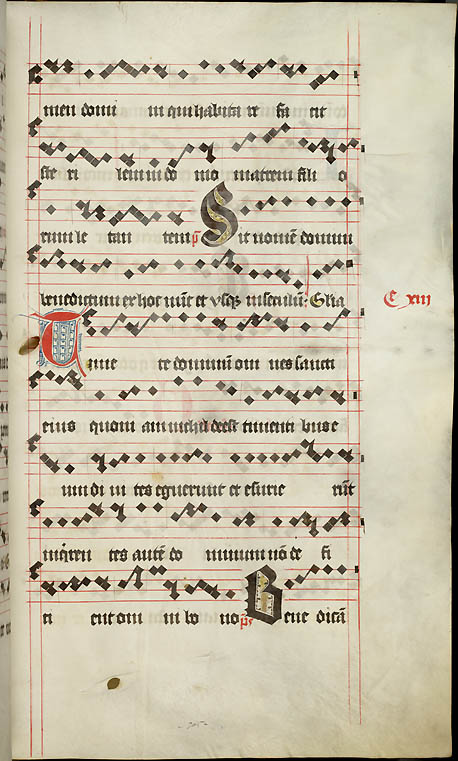 men domi ni qui habita re fa cit
ste ri lem in do mo matrem fili o
rum le tan tem ps Sit nomē domini
benedictum ex hoc nūc et vsq; in seculū. Glia
C xiii
Time te dominū om nes sancti
eius quoni am nichil deest timenti bus e
um di ui tes eguerunt et esurie rūt
inq̄ren tes autē do minum nō de fi
ci ent om ni bo no ps Bene dicā